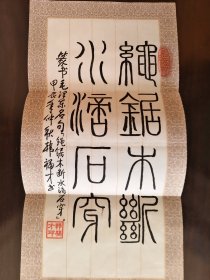 繩鋸木斷
水滴石穿
篆书毛泽东名句绳锯木断水滴石穿
甲午年仲秋